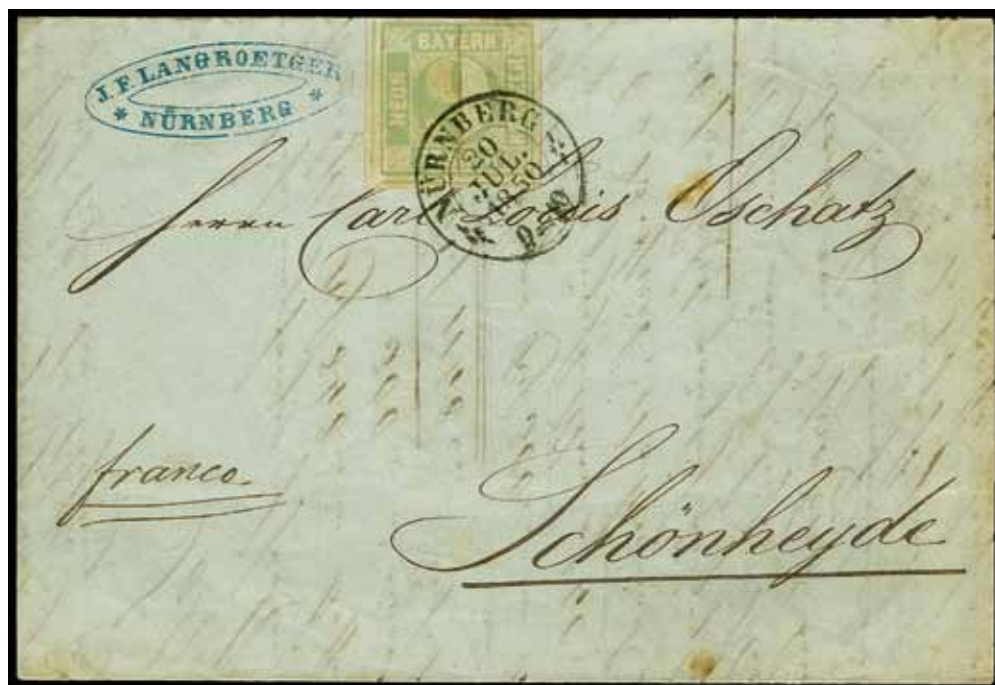 J. F. LANGROETGER
* NÜRNBERG *
BAYERN
NEUN
NÜRNBERG
20
JUL.
1850
Herrn Carl Louis Oschatz
franco
Schönheyde